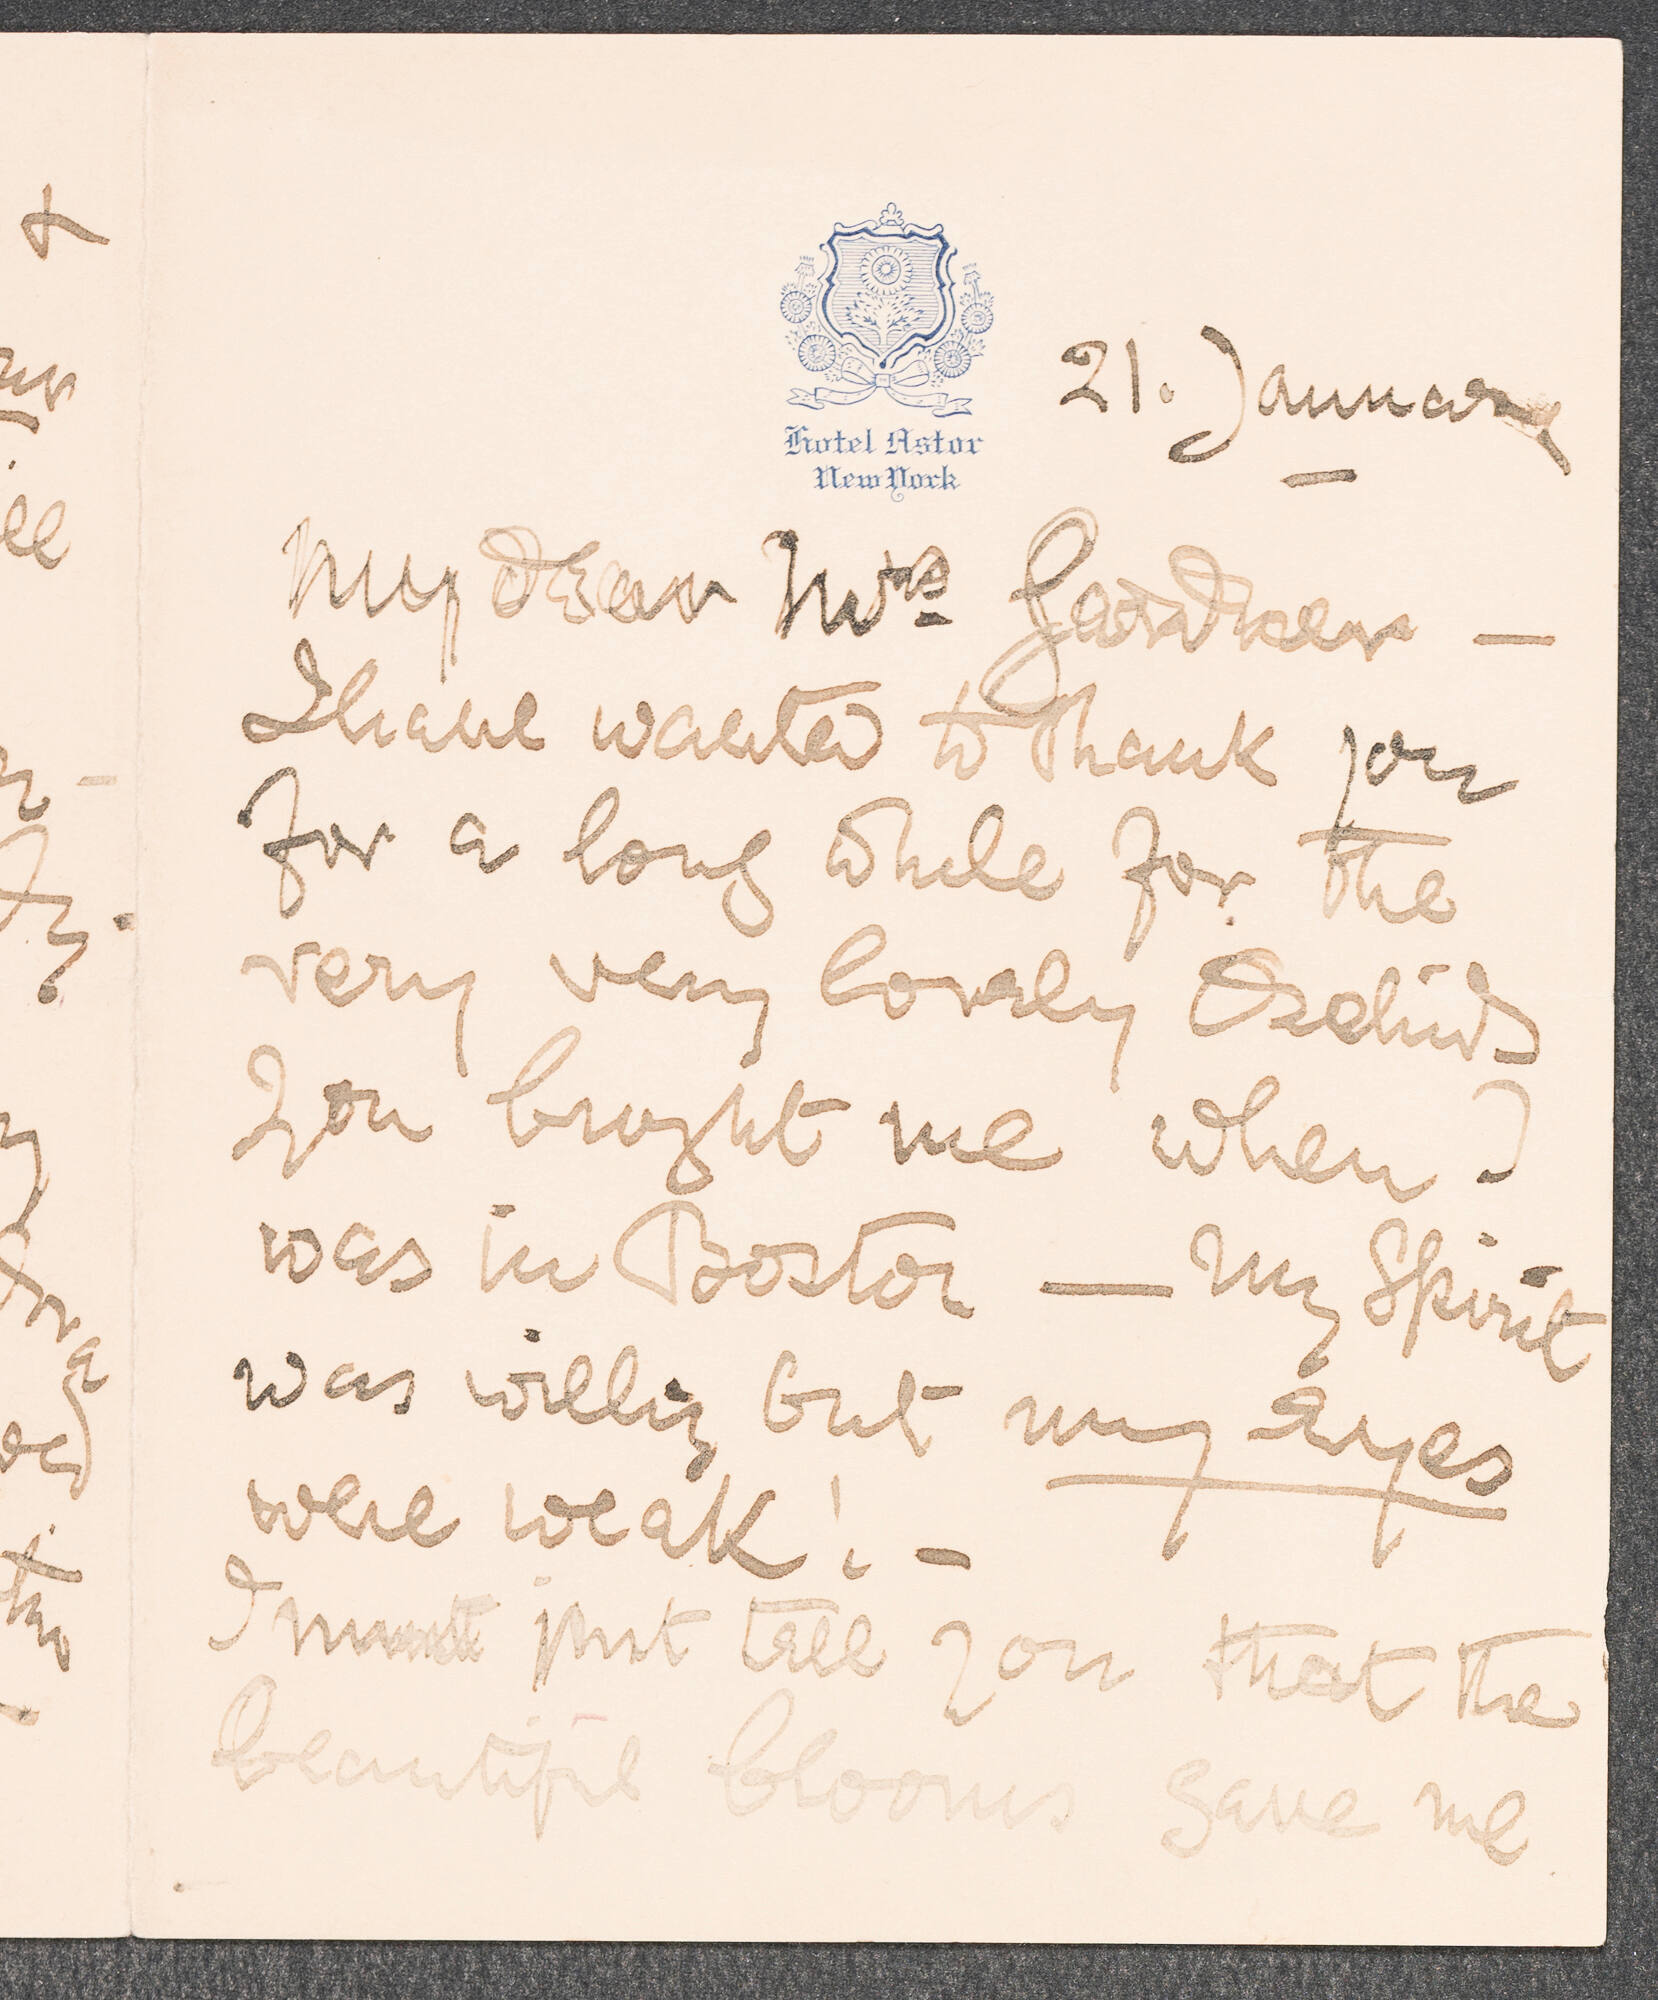 Hotel Astor
New York
21. January
My dear Mrs Gardner —
I have wanted to thank you
for a long while for the
very very lovely Orchids
you brought me when I
was in Boston — My Spirit
was willing but my eyes
were weak! —
I must just tell you that the
beautiful blooms gave me